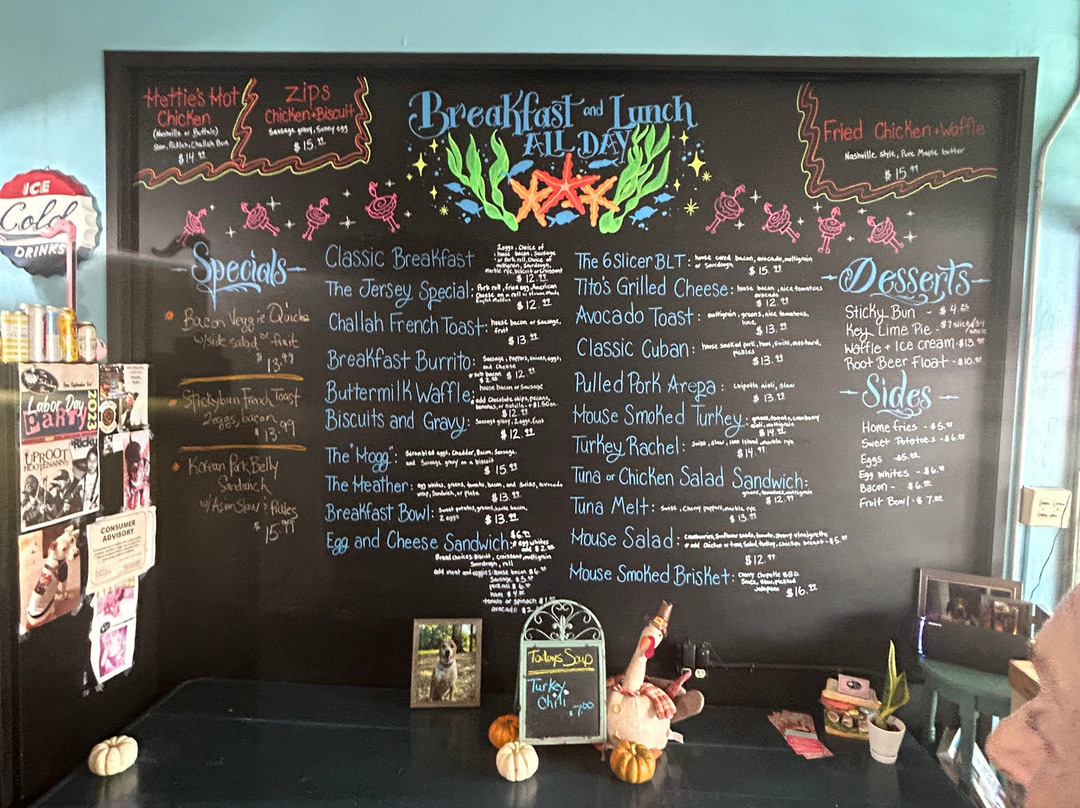 Hettie's Hot
Chicken
(Nashville or Buffalo)
Slaw, Pickles, Challah Bun
$14.99
Zips
Chicken + Biscuit
Sausage gravy, Sunny egg
$15.99
Breakfast and Lunch
ALL DAY
Fried Chicken + Waffle
Nashville style, Pure Maple butter
$15.99
ICE
Cold
DRINKS
Specials
Bacon Veggie Quiche
w/side salad or fruit
$13.99
Stickybun French Toast
2 eggs, bacon
$13.99
Korean Pork Belly
Sandwich
w/Asian Slaw + Pickles
$15.99
Classic Breakfast
2 eggs, Choice of
house bacon, Sausage
or Pork roll, Choice of
multigrain, Sourdough,
marble rye, biscuit or Croissant
$12.99
The Jersey Special:
Pork roll, fried egg, American
Cheese on a roll or
English Muffin
$12.99
Challah French Toast:
house bacon or Sausage,
fruit
$13.99
Breakfast Burrito:
Sausage, Peppers, onions, eggs,
and Cheese
$12.99
Buttermilk Waffle:
house bacon or Sausage
add Chocolate chips, pecans,
bananas, or nutella, + $1.50 ea.
$12.99
Biscuits and Gravy:
Sausage gravy, 2 eggs, fruit
$12.99
The "Mogg":
Scrambled eggs, Cheddar, Bacon, Sausage,
and Sausage gravy on a biscuit
$15.99
The Heather:
egg whites, greens, tomato, bacon, and Swiss, avocado
wrap, Sandwich, or Plate
$13.99
Breakfast Bowl:
Sweet potatoes, greens, house bacon,
2 eggs
$13.99
Egg and Cheese Sandwich:
$6.99
+ egg whites
add $2.00
Bread Choices: Biscuit, croissant, multigrain
Sourdough, roll
add meat and veggies: House bacon $6.00
Sausage $5.00
pork roll $6.00
ham $4.00
tomato or spinach $1
avocado $2
The 6 Slicer BLT:
house cured bacon, avocado, multigrain
or Sourdough
$15.99
Tito's Grilled Cheese:
house bacon, nice tomatoes
avocado
$12.99
Avocado Toast:
multigrain, greens, nice tomatoes,
lime,
$13.99
Classic Cuban:
house smoked pork, ham, Swiss, mustard,
pickles
$13.99
Pulled Pork Arepa:
Chipotle aioli, slaw
$13.99
Mouse Smoked Turkey:
greens, tomato, cranberry
aioli, multigrain
$14.99
Turkey Rachel:
Swiss, slaw, 1000 island, marble rye
$14.99
Tuna or Chicken Salad Sandwich:
greens, tomatoes, multigrain
$12.99
Tuna Melt:
Swiss, Cherry peppers, marble rye
$13.99
Mouse Salad:
Cranberries, Sunflower seeds, tomato, Sherry vinaigrette
+ add Chicken or tuna Salad, turkey, chicken breast - $5.00
$12.99
Mouse Smoked Brisket:
Cherry Chipotle BBQ
Sauce, slaw, pickled
Jalapeno
$16.99
Desserts
Sticky Bun - $4.25
Key Lime Pie - $7 slice/$34
whole
Waffle + Ice cream - $13.99
Root Beer Float - $10.00
Sides
Home fries - $5.00
Sweet Potatoes - $6.00
Eggs - $5.00
Egg Whites - $6.00
Bacon - $6.00
Fruit Bowl - $7.00
Labor Day
party
2023
Ricky
UPROOT
HOOTENANNY
CONSUMER
ADVISORY
Todays Soup
Turkey
Chili
$7.00